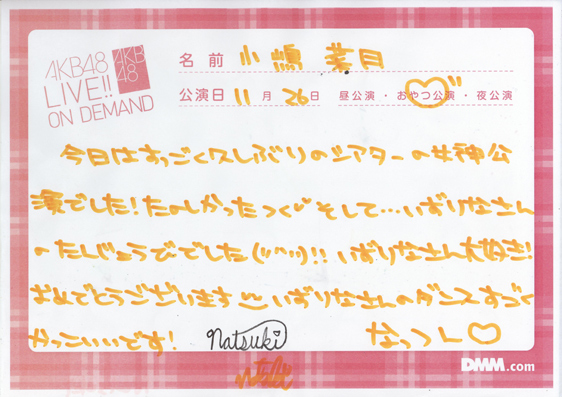 AKB48
LIVE!!
ON DEMAND
AKB
48
名前 小嶋菜月
公演日 11月26日 昼公演・おやつ公演・夜公演
今日はすっごく久しぶりのシアターの女神公
演でした!たのしかったっくそして…いずりなさん
のたんじょうびでした(''^'')!!いずりなさん大好き!
おめでとうございますいずりなさんのダンスすごく
かっこいいです!
natsuki
なっつん♡
DMM.com